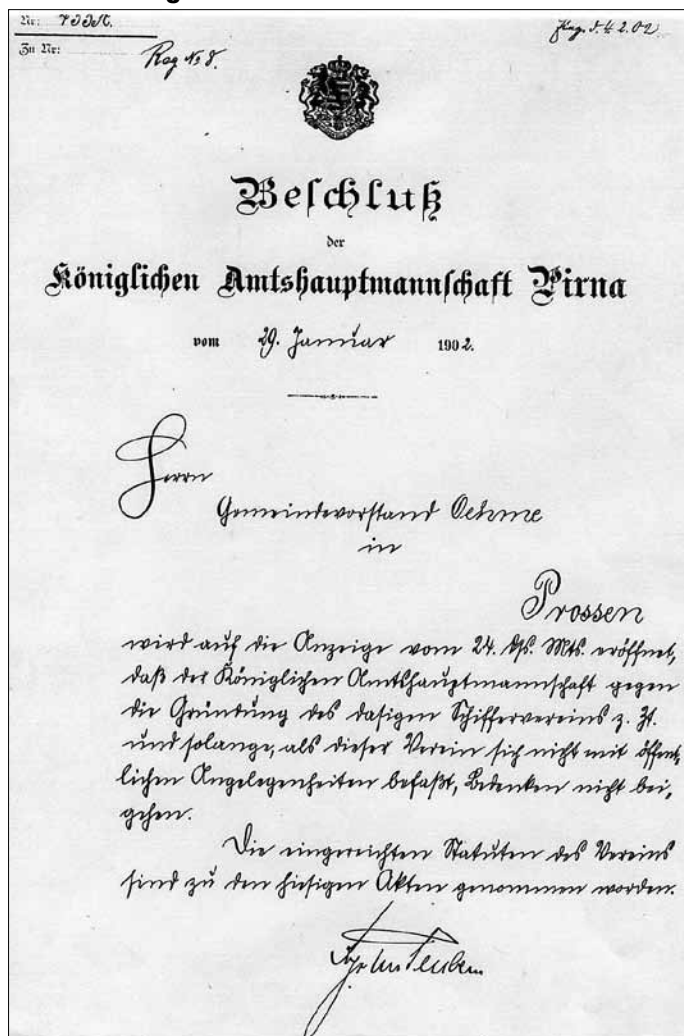 Nr:
Zu Nr:
Reg № 8.
2.02
Beschluß
der
Königlichen Amtshauptmannschaft Pirna
vom 29. Januar 1902.
Herrn
Gemeindevorstand Oehme
in
Prossen
wird auf die Anzeige vom 24. ds. Mts. eröffnet,
daß der Königlichen Amtshauptmannschaft gegen
die Gründung des dasigen Schiffervereins z. Zt.
und solange, als dieser Verein sich nicht mit öffent-
lichen Angelegenheiten befaßt, Bedenken nicht bei-
gehen.
Die eingereichten Statuten des Vereins
sind zu den hiesigen Akten genommen worden.